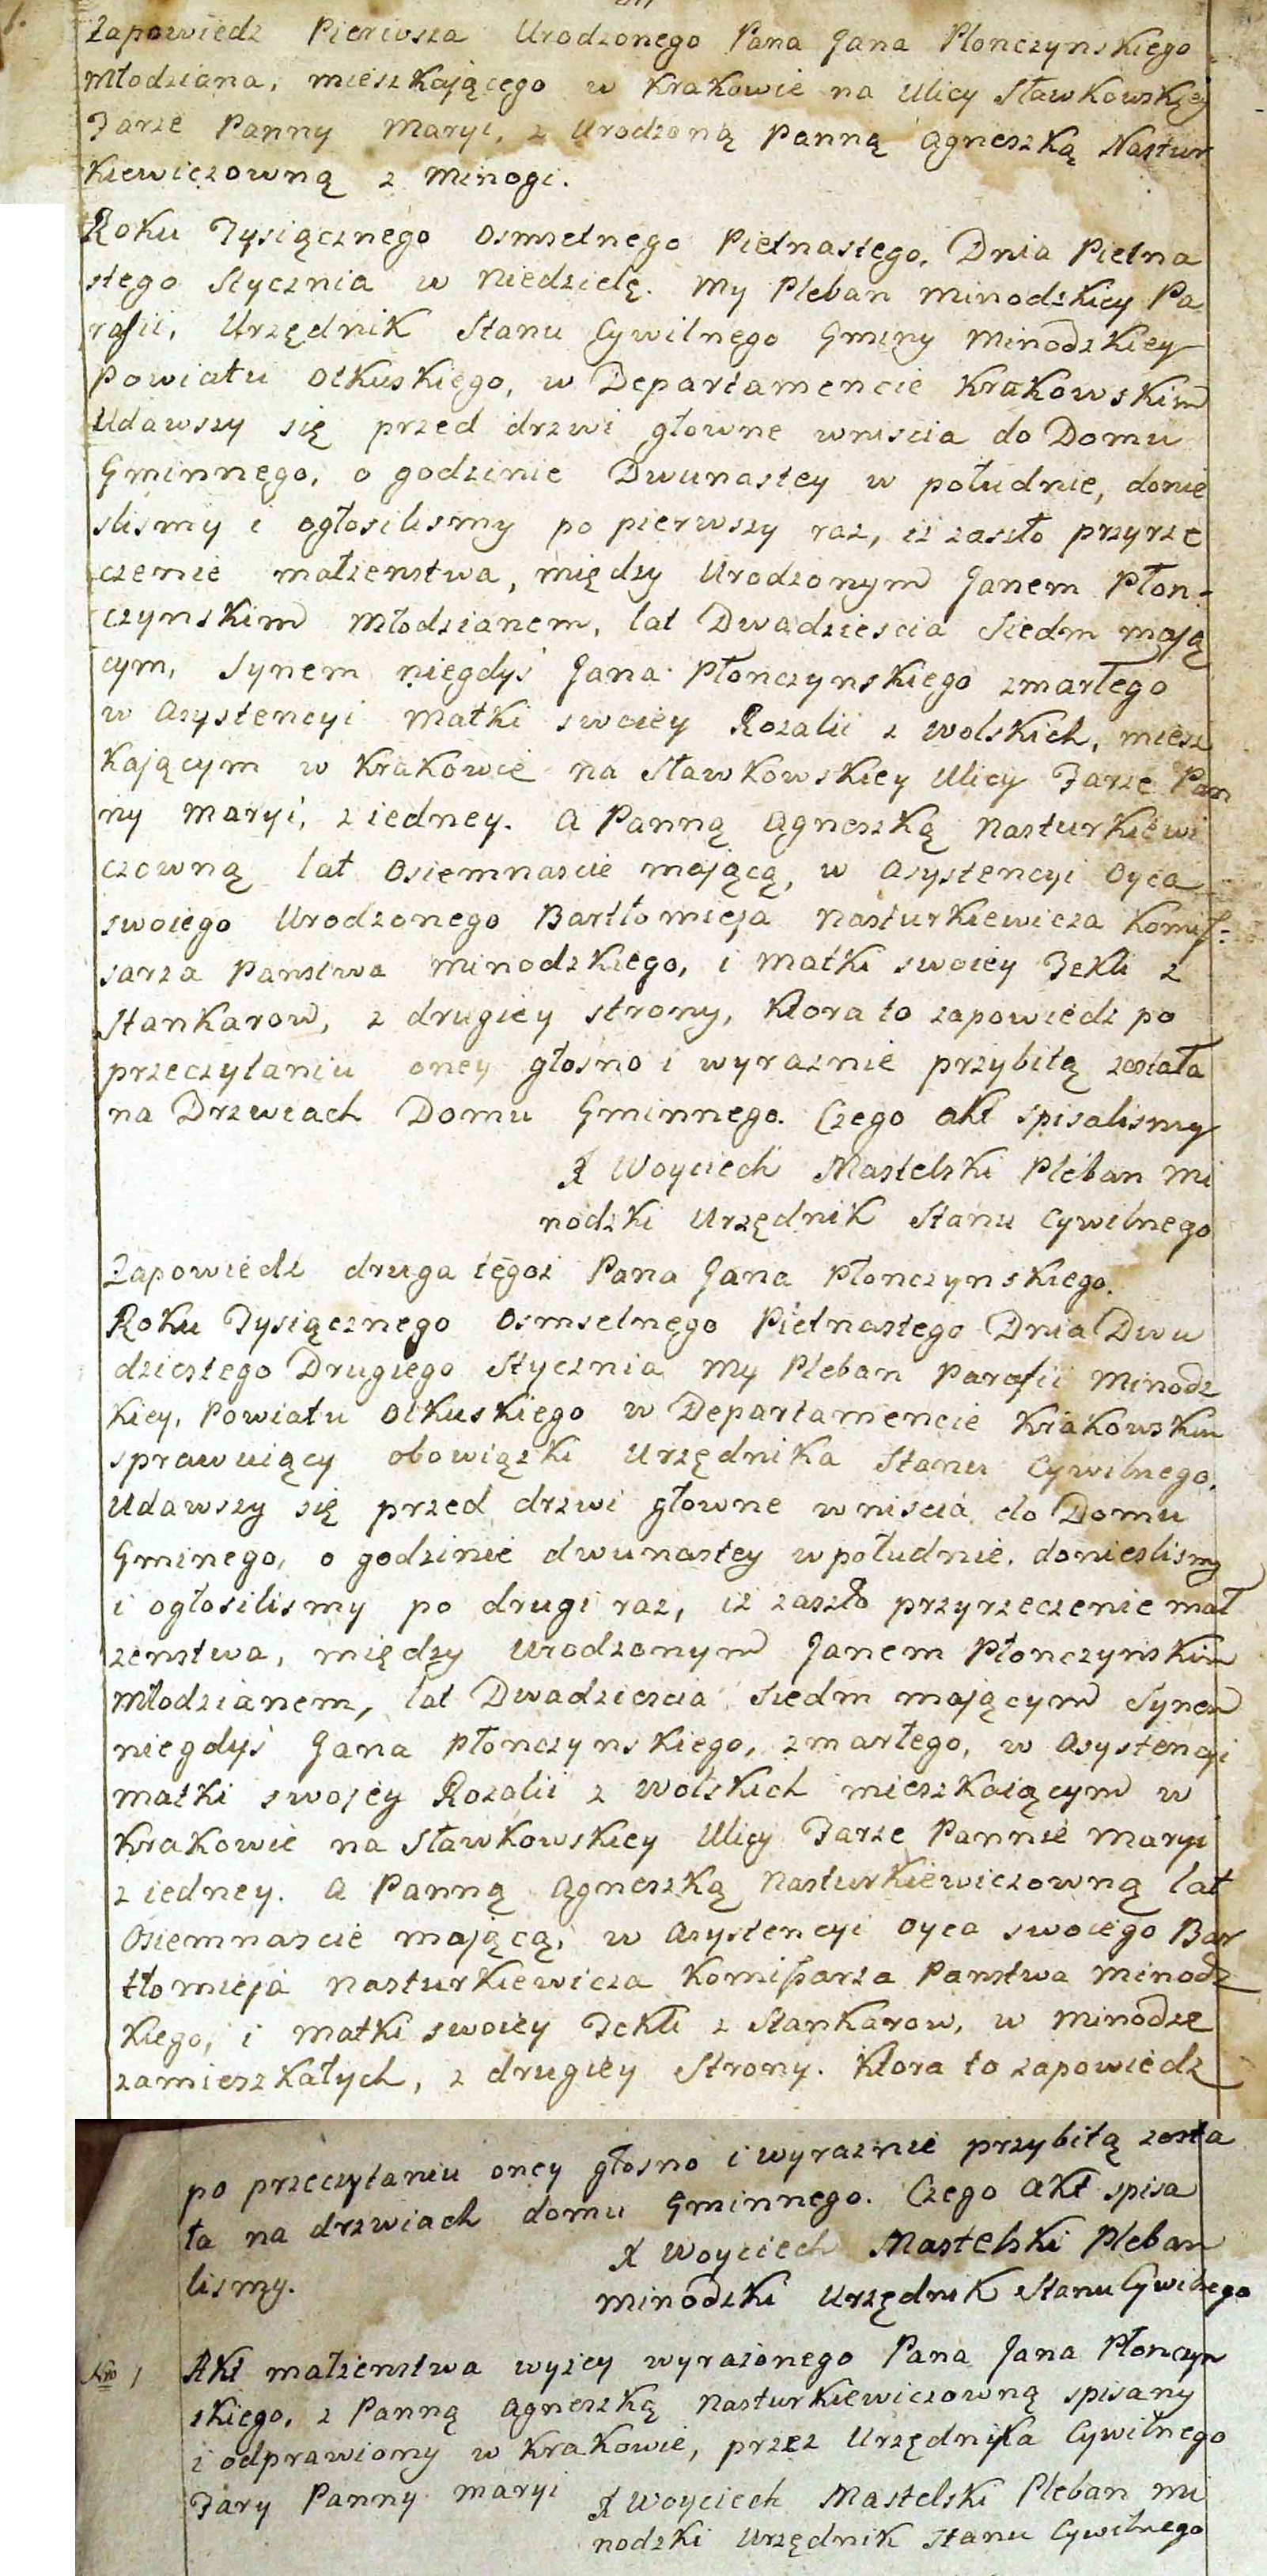 1.
Zapowiedz Pierwsza Urodzonego Pana Jana Płonczynskiego
Młodziana, mieszkającego w Krakowie na Ulicy Sławkowskiey
Farze Panny Maryi, z Urodzoną Panną Agneszką Nastur
kiewiczowną z Minogi.
Roku Tysiącznego Osmsetnego Pietnastego, Dnia Pietna
stego Stycznia w Niedzielę. My Pleban Minodzkiey Pa
rafii, Urzędnik Stanu Cywilnego Gminy Minodzkiey
Powiatu Olkuskiego, w Departamencie Krakowskim
Udawszy się przed drzwi głowne wniscia do Domu
Gminnego, o godzinie Dwunastey w południe, donie
slismy i ogłosilismy po pierwszy raz, iż zaszło przyrze
czenie małzenstwa, między Urodzonym Janem Płon-
czynskim Młodzianem, lat Dwadziescia Siedm mają
cym, Synem niegdys Jana Płonczynskiego zmarłego
w Asystencyi Matki swoiey Rozalii z Wolskich, miesz
kającym w Krakowie na Sławkowskiey Ulicy Farze Pan
ny Maryi, z iedney. A Panną Agneszką Nasturkiewi
czowną lat Osiemnascie mającą, w Asystencyi Oyca
swoiego Urodzonego Bartłomieja Nasturkiewicza Komis-
sarza Panstwa Minodzkiego, i Matki swoiey Tekli z
Stankarow, z drugiey strony, ktora to zapowiedz po
przeczytaniu oney głosno i wyraznie przybitą została
na Drzwiach Domu Gminnego. Czego akt spisalismy
X Woyciech Mastelski Pleban Mi
nodzki Urzędnik Stanu Cywilnego
Zapowiedz druga tegoz Pana Jana Płonczynskiego.
Roku Tysiącznego Osmsetnego Pietnastego Dnia Dwu
dziestego Drugiego Stycznia My Pleban Parafii Minodz
kiey, Powiatu Olkuskiego w Departamencie Krakowskim
sprawuiący obowiązki Urzędnika Stanu Cywilnego.
Udawszy się przed drzwi głowne wniscia do Domu
Gminego, o godzinie dwunastey w południe, donieslismy
i ogłosilismy po drugi raz, iż zaszło przyrzeczenie mał
zenstwa, między Urodzonym Janem Płonczynskim
Młodzianem, lat Dwadziescia Siedm mającym Synem
niegdys Jana Płonczynskiego, zmarłego, w Asystencyi
matki swojey Rozalii z Wolskich mieszkaiącym w
Krakowie na Sławkowskiey Ulicy Farze Pannie Maryi
z iedney. A Panną Agneszką Nasturkiewiczowną lat
Osiemnascie mającą, w Asystencyi Oyca swoiego Bar
tłomieja Nasturkiewicza Komissarza Panstwa Minodz
kiego, i Matki swoiey Tekli z Stankarow, w Minodze
zamieszkałych, z drugiey Strony. Ktora to zapowiedz
po przeczytaniu oney głosno i wyraznie przybitą zosta
ła na drzwiach domu Gminnego. Czego Akt spisa
lismy.
X Woyciech Mastelski Pleban
Minodzki Urzędnik Stanu Cywilnego
Nro 1
Akt małzenstwa wyzey wyrazonego Pana Jana Płonczyn
skiego, z Panną Agneszką Nasturkiewiczowną spisany
i odprawiony w Krakowie, przez Urzędnika Cywilnego
Fary Panny Maryi
X Woyciech Mastelski Pleban Mi
nodzki Urzędnik Stanu Cywilnego